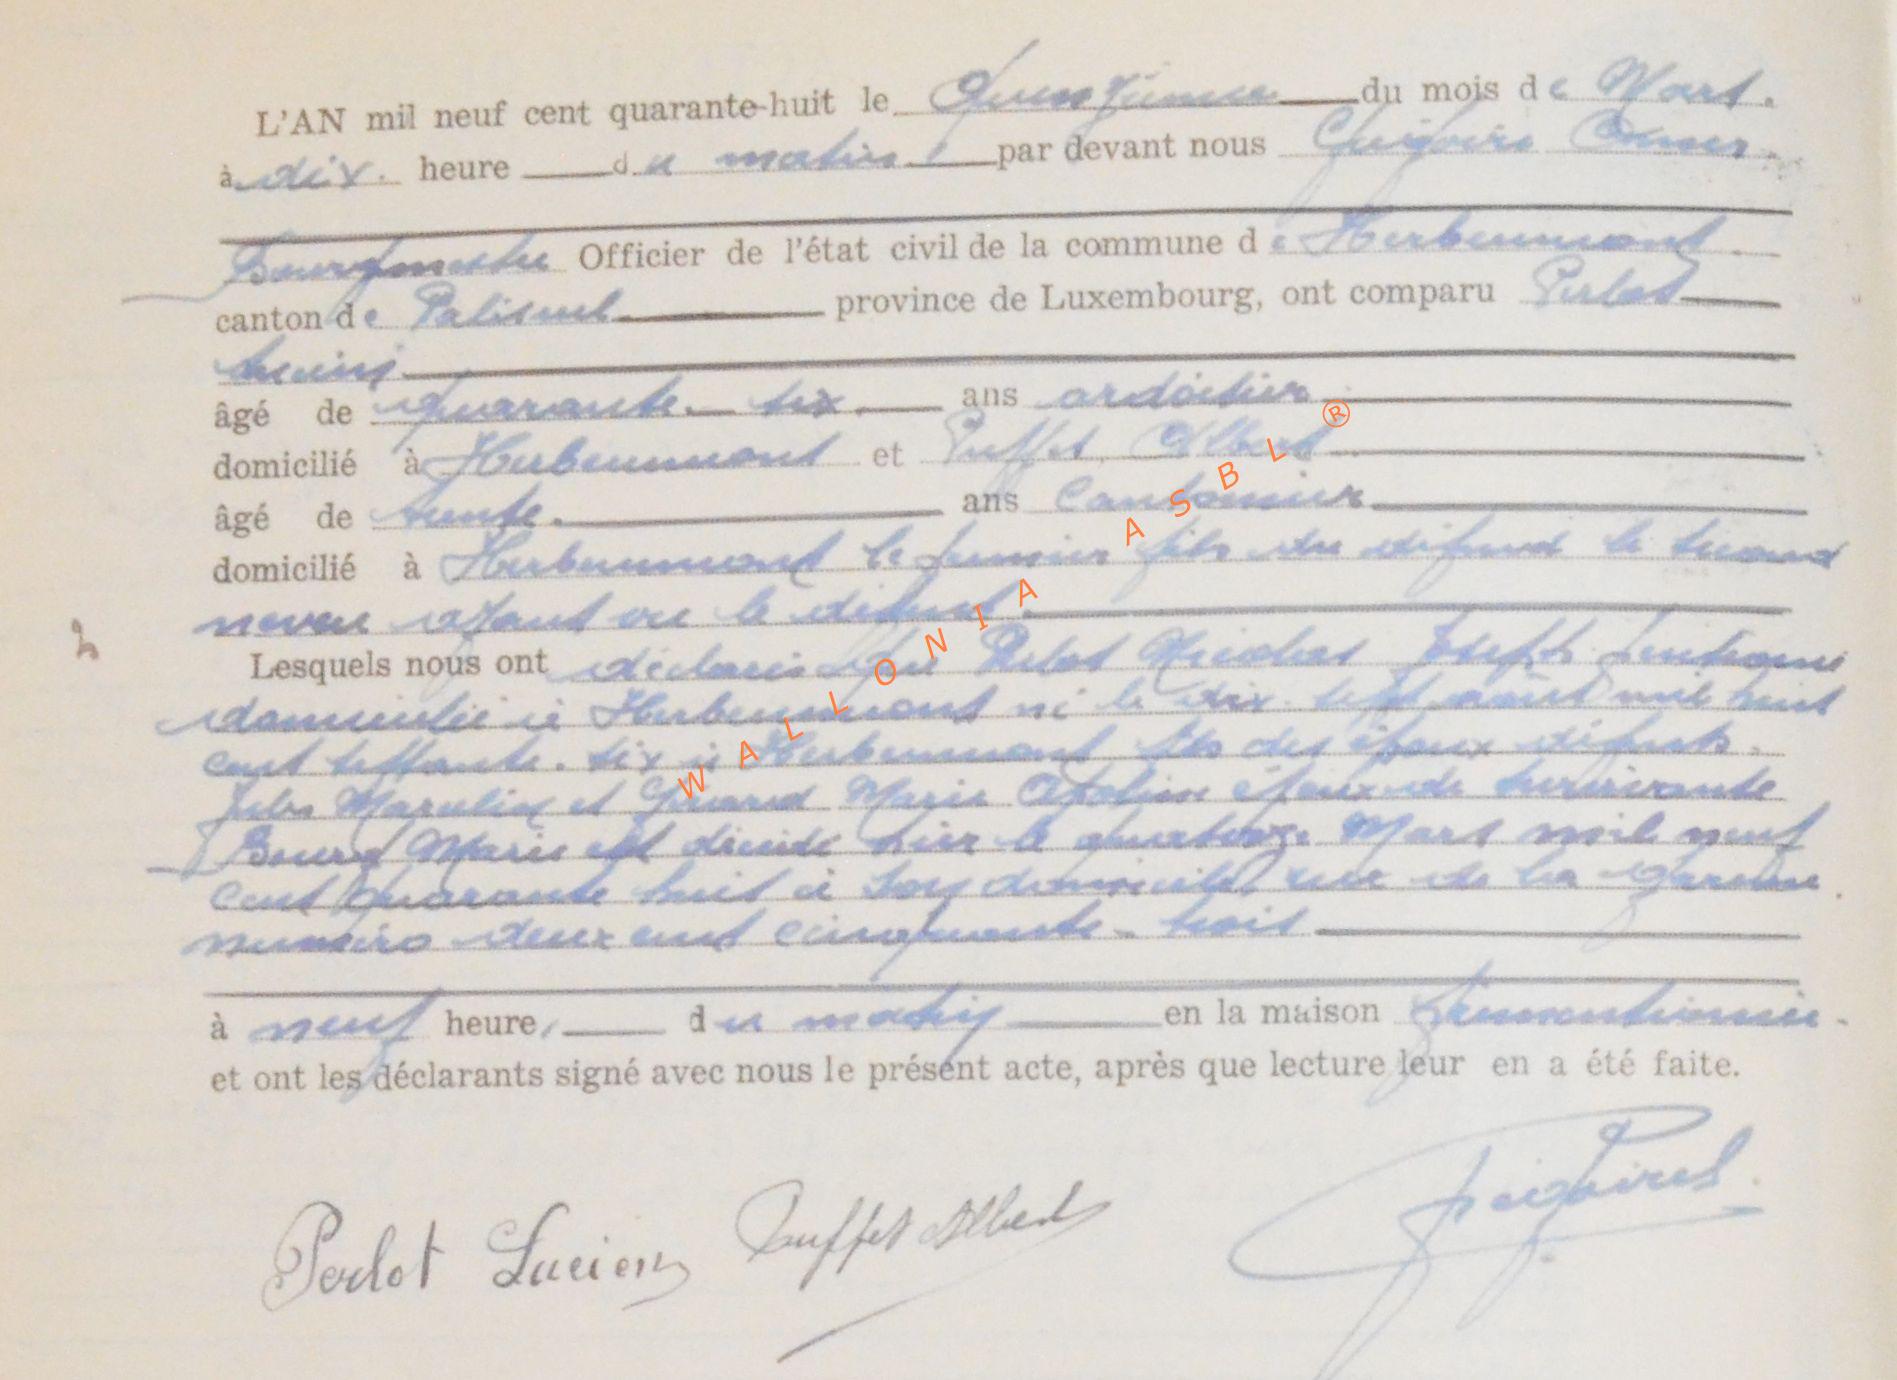 L'AN mil neuf cent quarante-huit le Quinzième du mois de Mars.
à dix heure du matin par devant nous Grégoire Omer
Bourgmestre Officier de l'état civil de la commune de Herbeumont.
canton de Paliseul province de Luxembourg, ont comparu Perlot
Lucien
âgé de quarante-six ans ardoisier
domicilié à Herbeumont et Puffet Albert
âgé de trente ans Cantonnier
domicilié à Herbeumont le premier fils du défunt le second
neveu ayant vu le défunt.
Lesquels nous ont déclaré que Perlot Nicolas Joseph pensionné
domicilié à Herbeumont né le dix-sept août mil huit
cent septante-six à Herbeumont fils des époux défunts.
Jules et Marie époux de survivante
Marie est décédé hier le quatorze Mars mil neuf
cent quarante huit à son domicile rue de la
numéro deux cent cinquante-trois
à neuf heure, du matin en la maison
et ont les déclarants signé avec nous le présent acte, après que lecture leur en a été faite.
Perlot Lucien Puffet Albert
WALLONIA ASBL ®